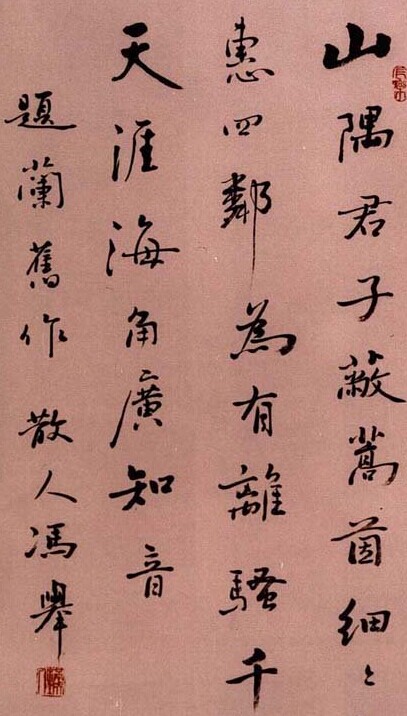 山隅君子蔽蒿茵細〻
惠四鄰為有離騷千
天涯海角廣知音
題蘭舊作 散人馮舉